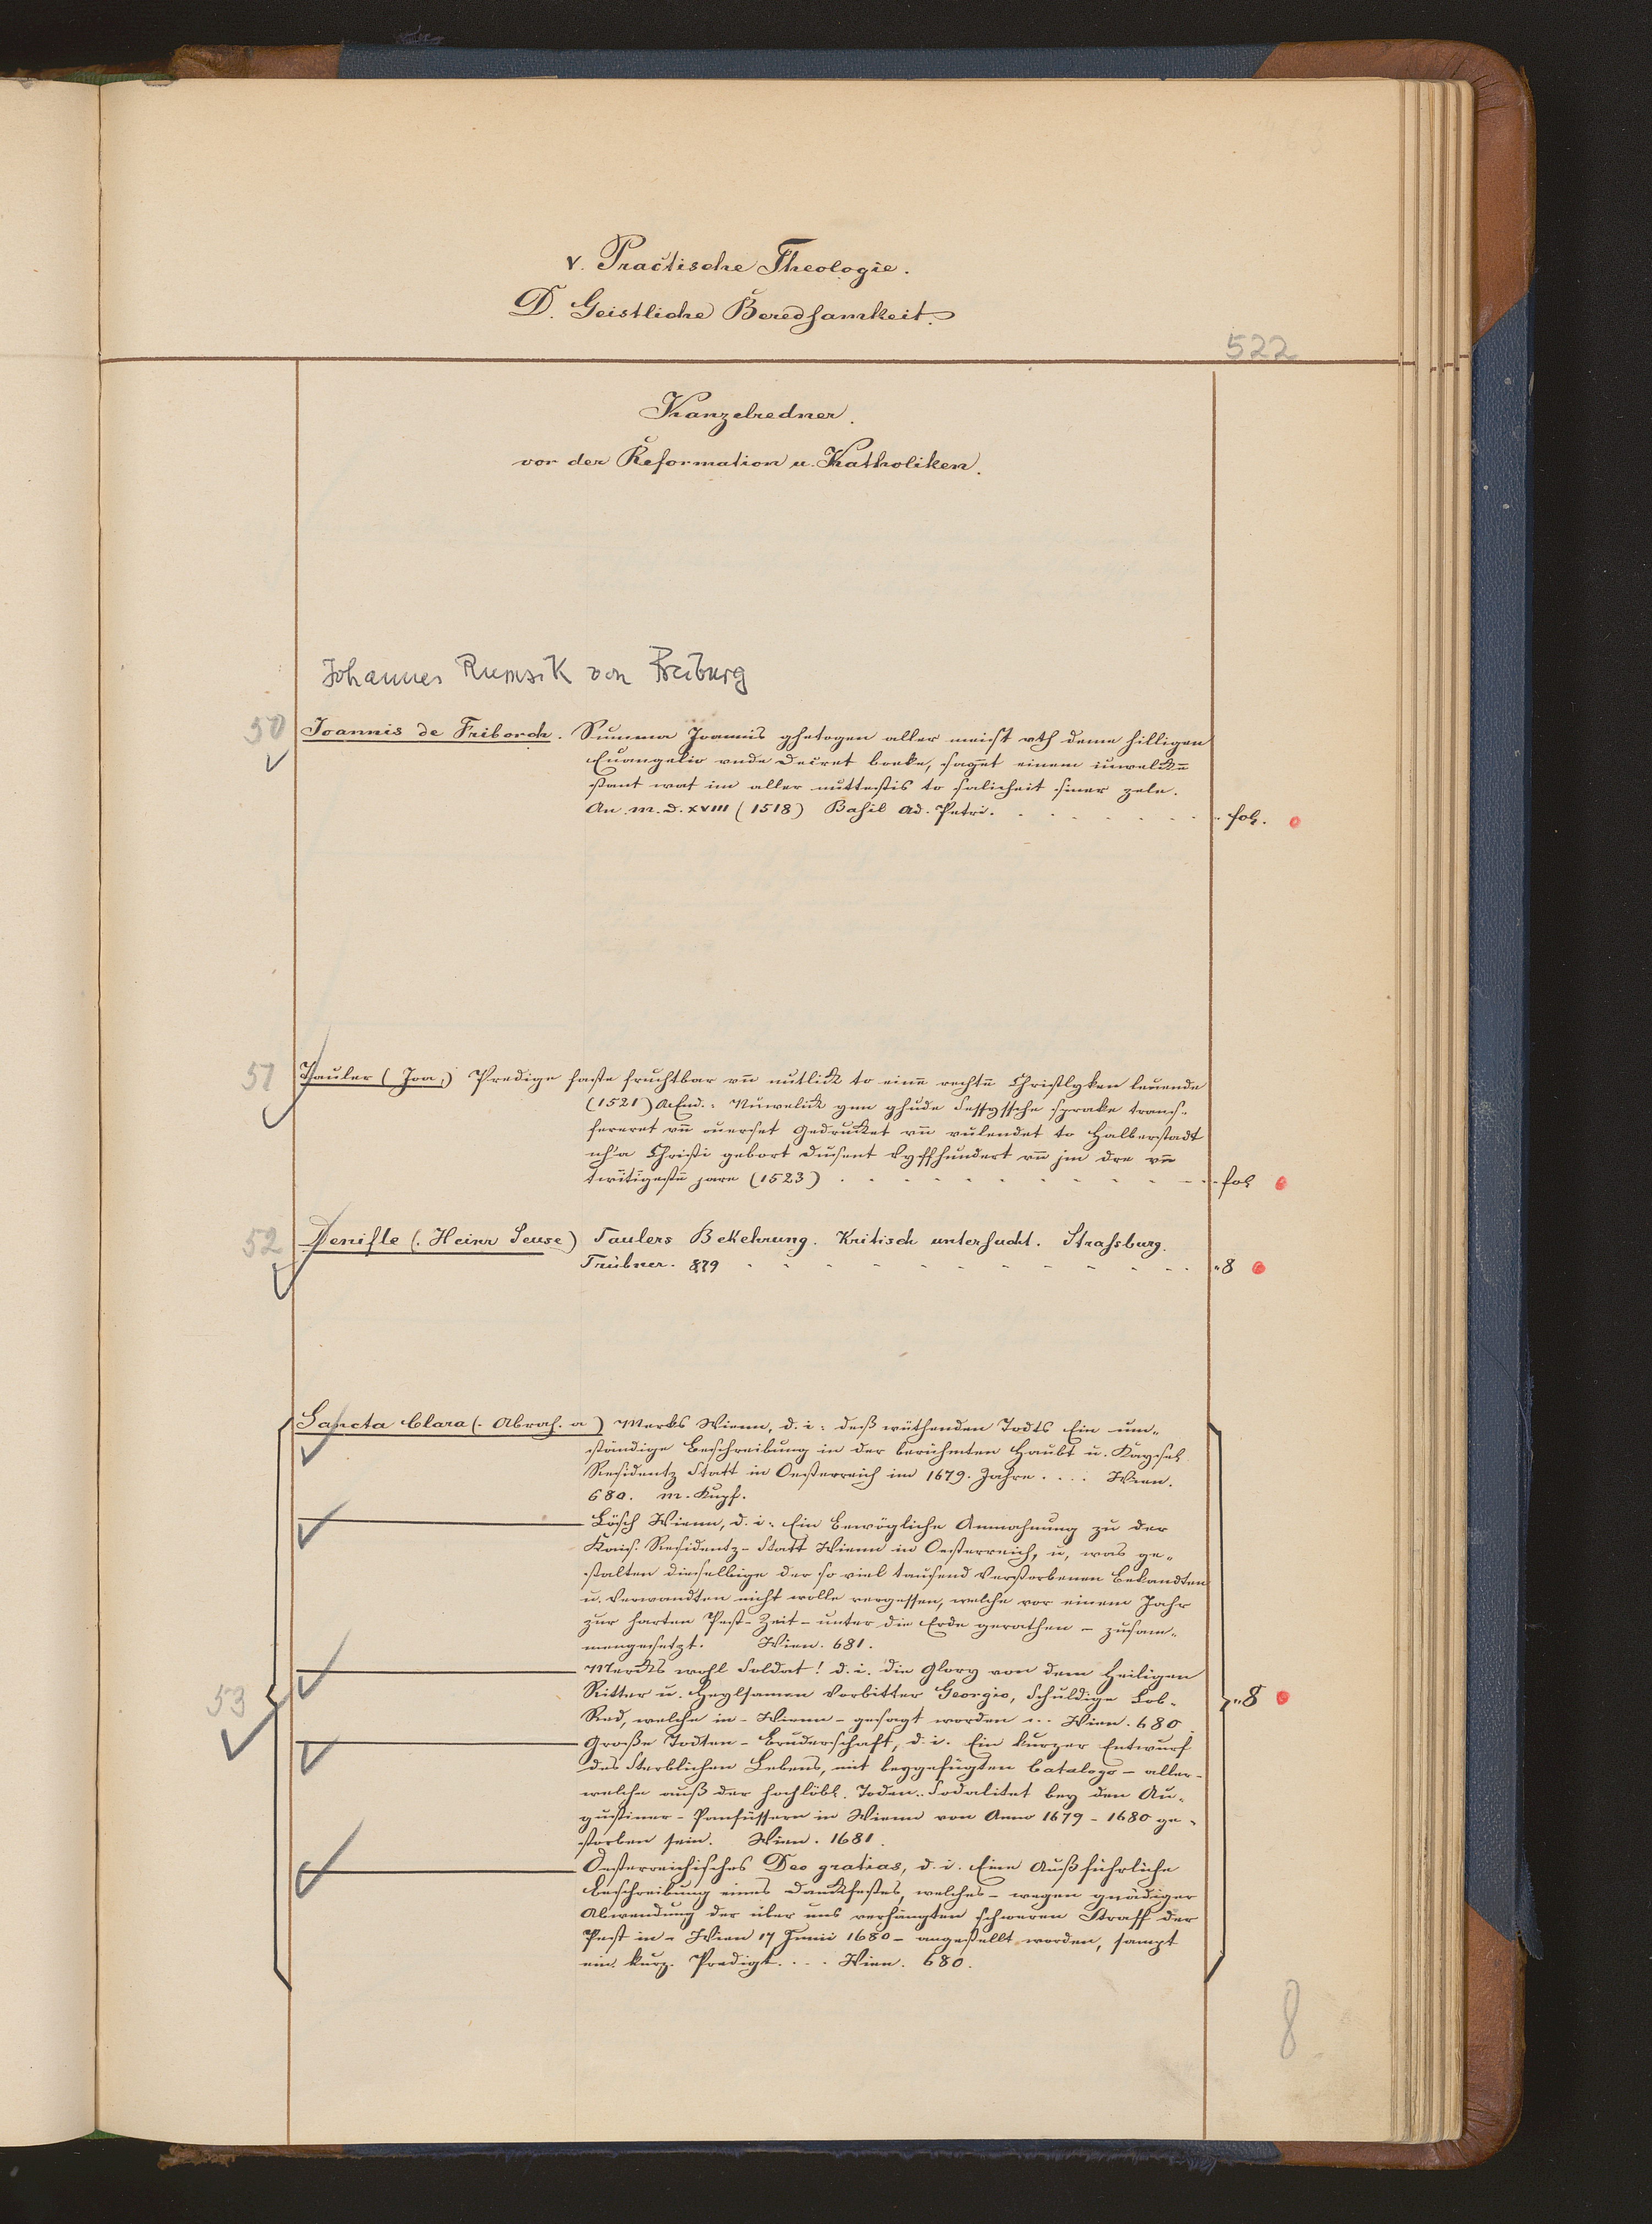 V. Practische Theologie.
D. Geistliche Beredsamkeit.
522
Kanzelredner.
vor der Reformation u. Katholiken.
Johannes Rumsik von Freiburg
50 Joannis de Friborch. Summa Joannis ghetogen aller meist vth deme hilligen
Euangelio vnde Decret boeke, saget einem iuwelikē
stant wat im aller nuttestis to salicheit siner zele.
An. m. d. XVIII (1518) Basil Ad. Petri. fol.
51 Tauler (Joa.) Predige faste fruchtbar vn̄ nutlick to einē rechtē Christlyken leuende
(1521) A. End.: Nuwelick ynn ghude Sessyssche sprake trans-
fereret vn̄ ouerset Gedrucket vn̄ vulendet to Halberstadt
na Christi gebort Dusent vyffhundert vn̄ jm dre vn̄
twītigestē jare (1523) fol
52 Denifle (Heinr Seuse) Taulers Bekehrung. Kritisch untersucht. Strassburg.
Trübner. 879 8
Sancta Clara (Abrah. a) Merks Wienn, d. i: deß wüthenden Todts Ein um-
ständige Beschreibung in der berühmten Haubt u. Kaysel.
Residentz Statt in Oesterreich im 1679. Jahre .... Wien.
680. m. Kupf.
Lösch Wienn, d. i: Ein Bewögliche Anmahnung zu der
Kais. Residentz-Statt Wienn in Oesterreich, u, was ge-
stalten dieselbige der so viel tausend Verstorbenen Bekandten
u. Verwandten nicht wolle vergessen, welche vor einem Jahr
zur harten Pest-Zeit - unter die Erde gerathen - zusam-
mengesetzt. Wien. 681.
Mercks wohl Soldat! d. i. die Glory von dem Heiligen
Ritter u. Heylsamen Vorbitter Georgio, Schuldige Lob-
Red, welche in - Wienn - gesagt worden ... Wien. 680
53 8
Große Todten-Bruderschaft, d. i. Ein kurzer Entwurf
des Sterblichen Lebens, mit beygefügten Catalogo - aller-
welche auß der hochlöbl. Toden-Sodalitet bey den Au-
gustiner-Parfüssern in Wienn von Anno 1679 - 1680 ge-
storben sein. Wien. 1681.
Oesterreichisches Deo gratias, d. i. Eine Außführliche
Beschreibung eines Danckfestes, welches - wegen gnädiger
Abwendung der über uns verhängten schweren Straff der
Pest in - Wien 17 Junii 1680 - angestellt worden, sampt
ein. kurz. Predigt .... Wien. 680.
8